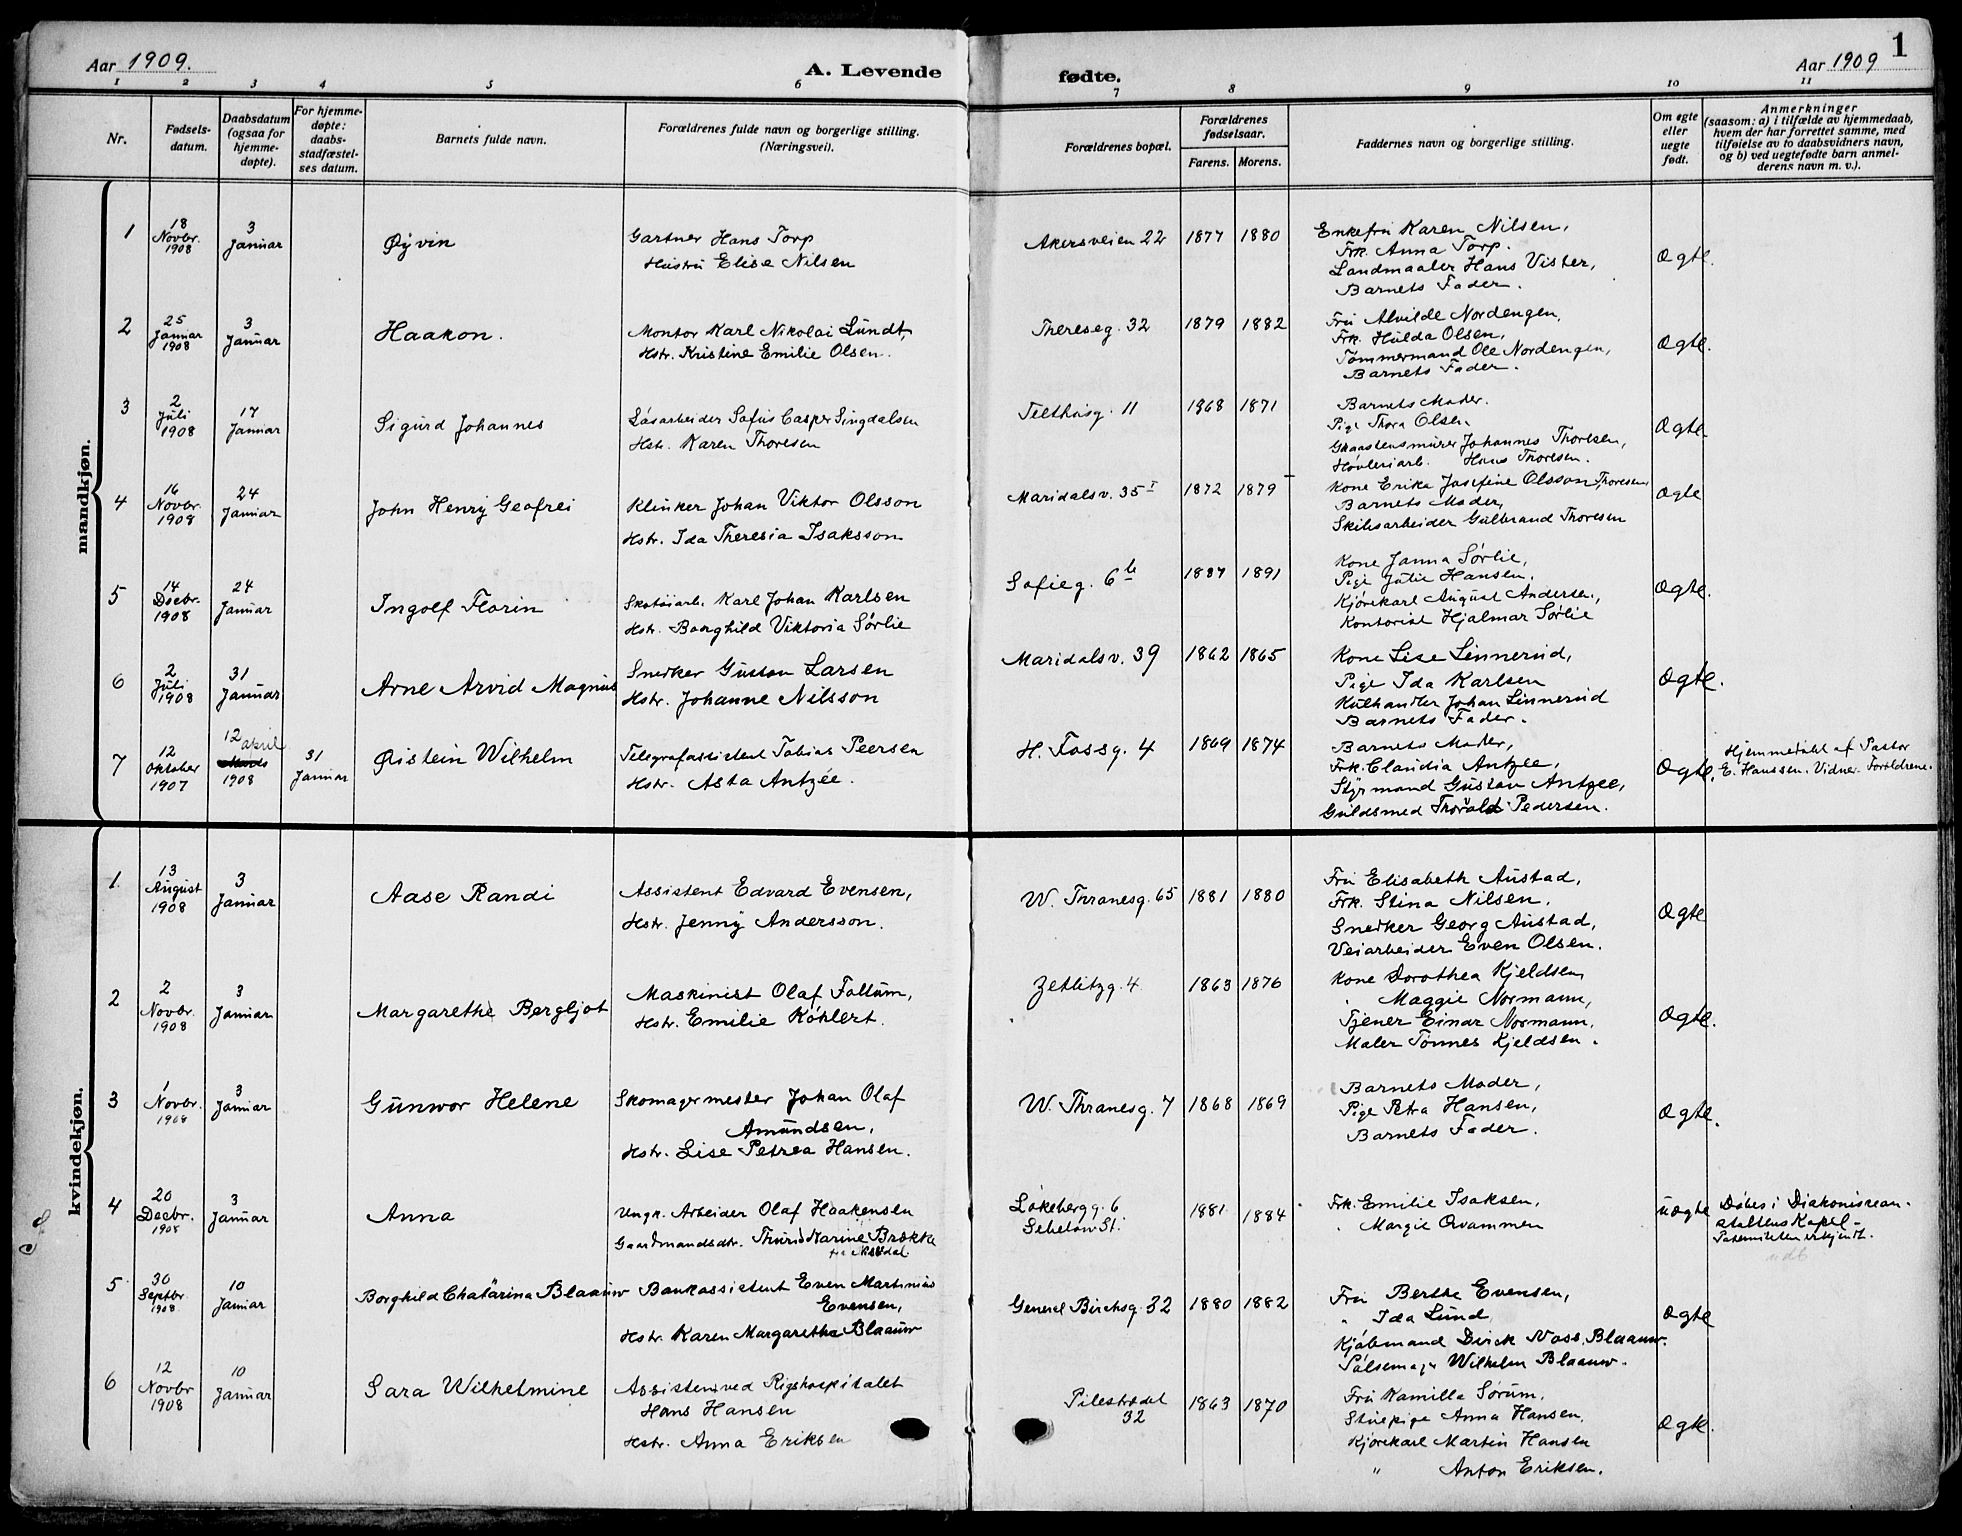 Aar 1909.
A. Levende
fødte.
Aar 1909
1
1 2 3 4 5 6
7 8 9 10 11
Nr.
Fødsels-
datum.
Daabsdatum
(ogsaa for
hjemme-
døpte).
For hjemme-
døpte:
daabs-
stadfæstel-
ses datum.
Barnets fulde navn.
Forældrenes fulde navn og borgerlige stilling.
(Næringsvei).
Forældrenes bopæl.
Forældrenes
fødselsaar.
Farens. Morens.
Faddernes navn og borgerlige stilling.
Om egte
eller
uegte
født.
Anmerkninger
(saasom: a) i tilfælde av hjemmedaab,
hvem der har forrettet samme, med
tilføielse av to daabsvidners navn,
og b) ved uegtefødte barn anmel-
derens navn m. v.).
mandkjøn.
1
18
Novbr.
1908
3
Januar
Øyvin
Gartner Hans Torp
Hustru Elise Nilsen
Akersveien 22
1877 1880
Enkefru Karen Nilsen,
Frk. Anna Torp.
Landmaaler Hans Vister,
Barnets Fader.
Ægte.
2
25
Januar
1908
3
Januar
Haakon.
Montor Karl Nikolai Lundt,
Hstr. Kristine Emilie Olsen.
Thereseg. 32
1879 1882
Fru Alvilde Nordengen,
Frk. Hulda Olsen,
Tømmermand Ole Nordengen,
Barnets Fader.
Ægte.
3
2
Juli
1908
17
Januar
Sigurd Johannes
Løsarbeider Sofus Casper Singdalsen
Hstr. Karen Thoresen
Telthusg. 11
1868 1871
Barnets Moder.
Pige Thora Olsen.
Graastensmurer Johannes Thoresen,
Høvleriarb. Hans Thoresen.
Ægte.
4
16
Novbr.
1908
24
Januar
John Henry Geofrei
Klinker Johan Viktor Olsson
Hstr. Ida Theresia Isaksson
Maridalsv. 35 I
1872 1879
Kone Erika Josefine Olsson Thoresen,
Barnets Moder,
Skibsarbeider Gulbrand Thoresen
Ægte
5
14
Decbr.
1908
24
Januar
Ingolf Florin
Skotøiarb. Karl Johan Karlsen
Hstr. Borghild Viktoria Sørlie
Sofieg. 6 b
1887 1891
Kone Janna Sørlie,
Pige Julie Hansen.
Kjørekarl August Andersen,
Kontorist Hjalmar Sørlie
Ægte.
6
2
Juli
1908
31
Januar
Arne Arvid Magnus
Snedker Gustav Larsen
Hstr. Johanne Nilsson
Maridalsv. 39
1862 1865
Kone Lise Linnerud,
Pige Ida Karlsen
Kulhandler Johan Linnerud
Barnets Fader.
Ægte.
7
12
Oktober
1907
12 april
1908
31
Januar
Øistein Wilhelm
Telegrafassistent Tobias Peersen
Hstr. Asta Antzée.
H. Fossg. 4
1869 1874
Barnets Moder,
Frk. Claudia Antzee,
Styrmand Gustav Antzee,
Guldsmed Thorald Pedersen.
Ægte.
Hjemmedøbt af Pastor
E. Hanssen. Vidner: Forældrene.
kvindekjøn.
1
13
August
1908
3
Januar
Aase Randi
Assistent Edvard Evensen,
Hstr. Jenny Andersson.
W. Thranesg. 65
1881 1880
Fru Elisabeth Austad,
Frk. Stina Nilsen.
Snedker Georg Austad,
Veiarbeider Even Olsen.
Ægte
2
2
Novbr.
1908
3
Januar
Margarethe Bergljot
Maskinist Olaf Follum,
Hstr. Emilie Köhlert.
Zetlitzg. 4
1863 1876
Kone Dorothea Kjeldsen
" Maggie Normann,
Tjener Einar Normann,
Maler Tønnes Kjeldsen.
Ægte.
3
1
Novbr.
1908
3
Januar
Gunwor Helene
Skomagermester Johan Olaf
Amundsen,
Hstr. Lise Petrea Hansen.
W. Thranesg. 7
1868 1869
Barnets Moder,
Pige Petra Hansen,
Barnets Fader.
Ægte.
4
20
Decbr.
1908
3
Januar
Anna
Ungk. Arbeider Olaf Haakensen
Gaardmandsdtr. Thurid Marine Brække
Løkebergg. 6
1881 1884
Frk. Emilie Isaksen,
" Margie Qvammen
uægte
Døbes i Diakonissean-
staltens Kapel-
Paterniteten erkjendt.
udt
5
30
Septbr.
1908
10
Januar
Borghild Chatarina Blaauw
Bankassistent Even Martinius
Evensen,
Hstr. Karen Margarethe Blaauw
General Birchsg. 32
1880 1882
Fru Berthe Evensen,
" Ida Lund,
Kjøbmand Dirck Voss Blaauw.
Pølsemager Wilhelm Blaauw.
Ægte
6
12
Novbr
1908
10
Januar
Sara Wilhelmine
Assistent ved Rigshospitalet
Hans Hansen
Hstr. Anna Eriksen
Pilestrædet
32
1863 1870
Fru Kamilla Sørum,
Stuepige Anna Hansen,
Kjørekarl Martin Hansen
" Anton Eriksen.
Ægte.